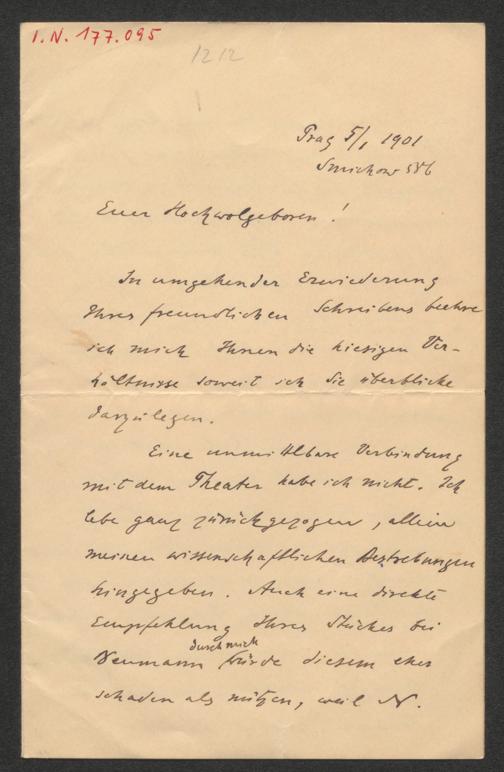 I.N. 177.095
1212
Prag 5/1 1901
Smichow 586
Euer Hochwolgeboren!
In umgehender Erwiederung
Ihres freundlichen Schreibens beehre
ich mich Ihnen die hiesigen Ver-
hältnisse soweit ich sie überblicke
darzulegen.
Eine unmittlbare Verbindung
mit dem Theater habe ich nicht. Ich
lebe ganz zurückgezogen, allein
meinen wissenschaftlichen Bestrebungen
hingegeben. Auch eine direkte
Empfehlung Ihres Stückes bei
Neumann durch mich würde diesem eher
schaden als nützen, weil N.